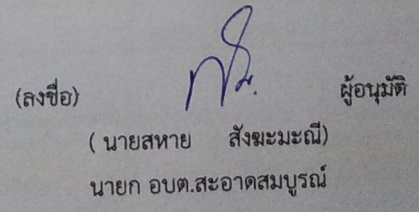 (ลงชื่อ) ผู้อนุมัติ
( นายสหาย สังฆะมะณี)
นายก อบต.สะอาดสมบูรณ์